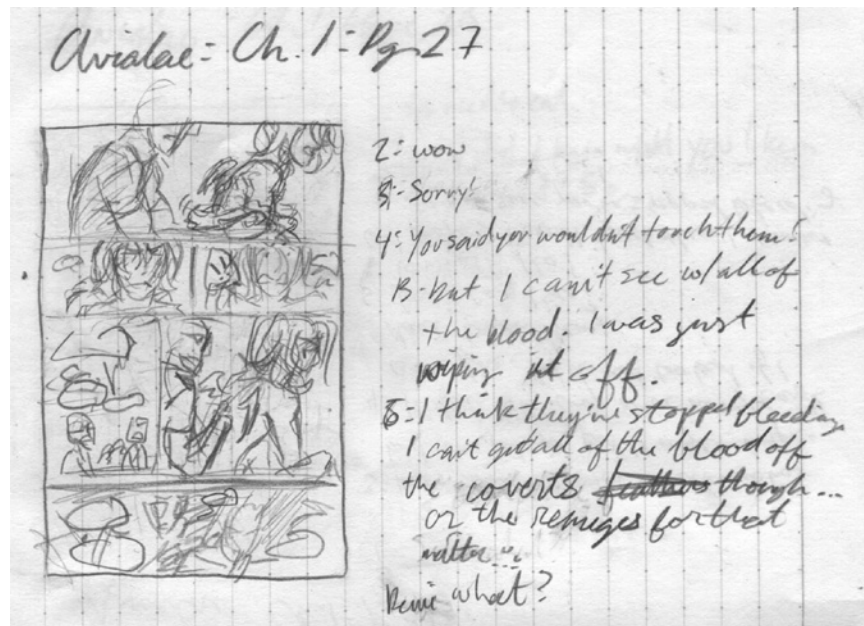 Avialae: Ch. 1: Pg 27
2: wow
3: Sorry!
4: You said you wouldn't touch them!
B- but I can't see w/ all of
the blood. I was just
wiping it off.
5: I think they've stopped bleeding.
I can't get all of the blood off
the coverts feathers though...
or the remiges for that
matter...
Remi what?